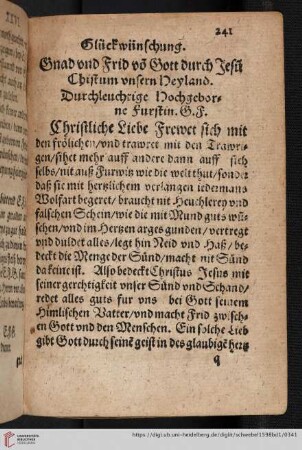 XXVI.
241
Glückwünschung.
Gnad vnd Frid võ Gott durch Jesũ
Chistum vnsern Heyland.
Durchleuchtige Hochgebor-
ne Furstin. G. F.
Christliche Liebe Frewet sich mit
den frölichen/vnd trawret mit den Trawri-
gen/sihet mehr auff andere dann auff sich
selbs/nit auß Furwitz wie die welt thut/sonder
daß sie mit hertzlichem verlangen iedermans
Wolfart begeret/braucht nit Heuchlerey vnd
falschen Schein/wie die mit Mund guts wü-
schen/vnd im Hertzen arges gunden/vertregt
vnd duldet alles/legt hin Neid vnd Haß/be-
deckt die Menge der Sünd/macht nit Sünd
da keine ist. Also bedeckt Christus Jesus mit
seiner gerechtigkeit vnser Sünd vnd Schand/
redet alles guts fur vns bey Gott seinem
Himlischen Vatter/vnd macht Frid zwisch-
en Gott vnd den Menschen. Ein solche Lieb
gibt Gott durch seinẽ geist in des glaubigẽ hertz
q
https://digi.ub.uni-heidelberg.de/diglit/schwebel1598bd1/0341